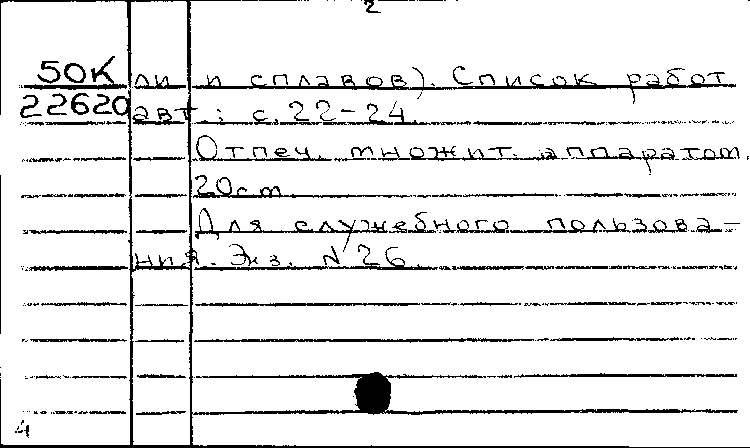 2
50К ли и сплавов). Список работ
22620 авт.: с. 22-24.
Отпеч. множит. аппаратом.
20см.
Для служебного пользова-
ния. Экз. N 26.
4